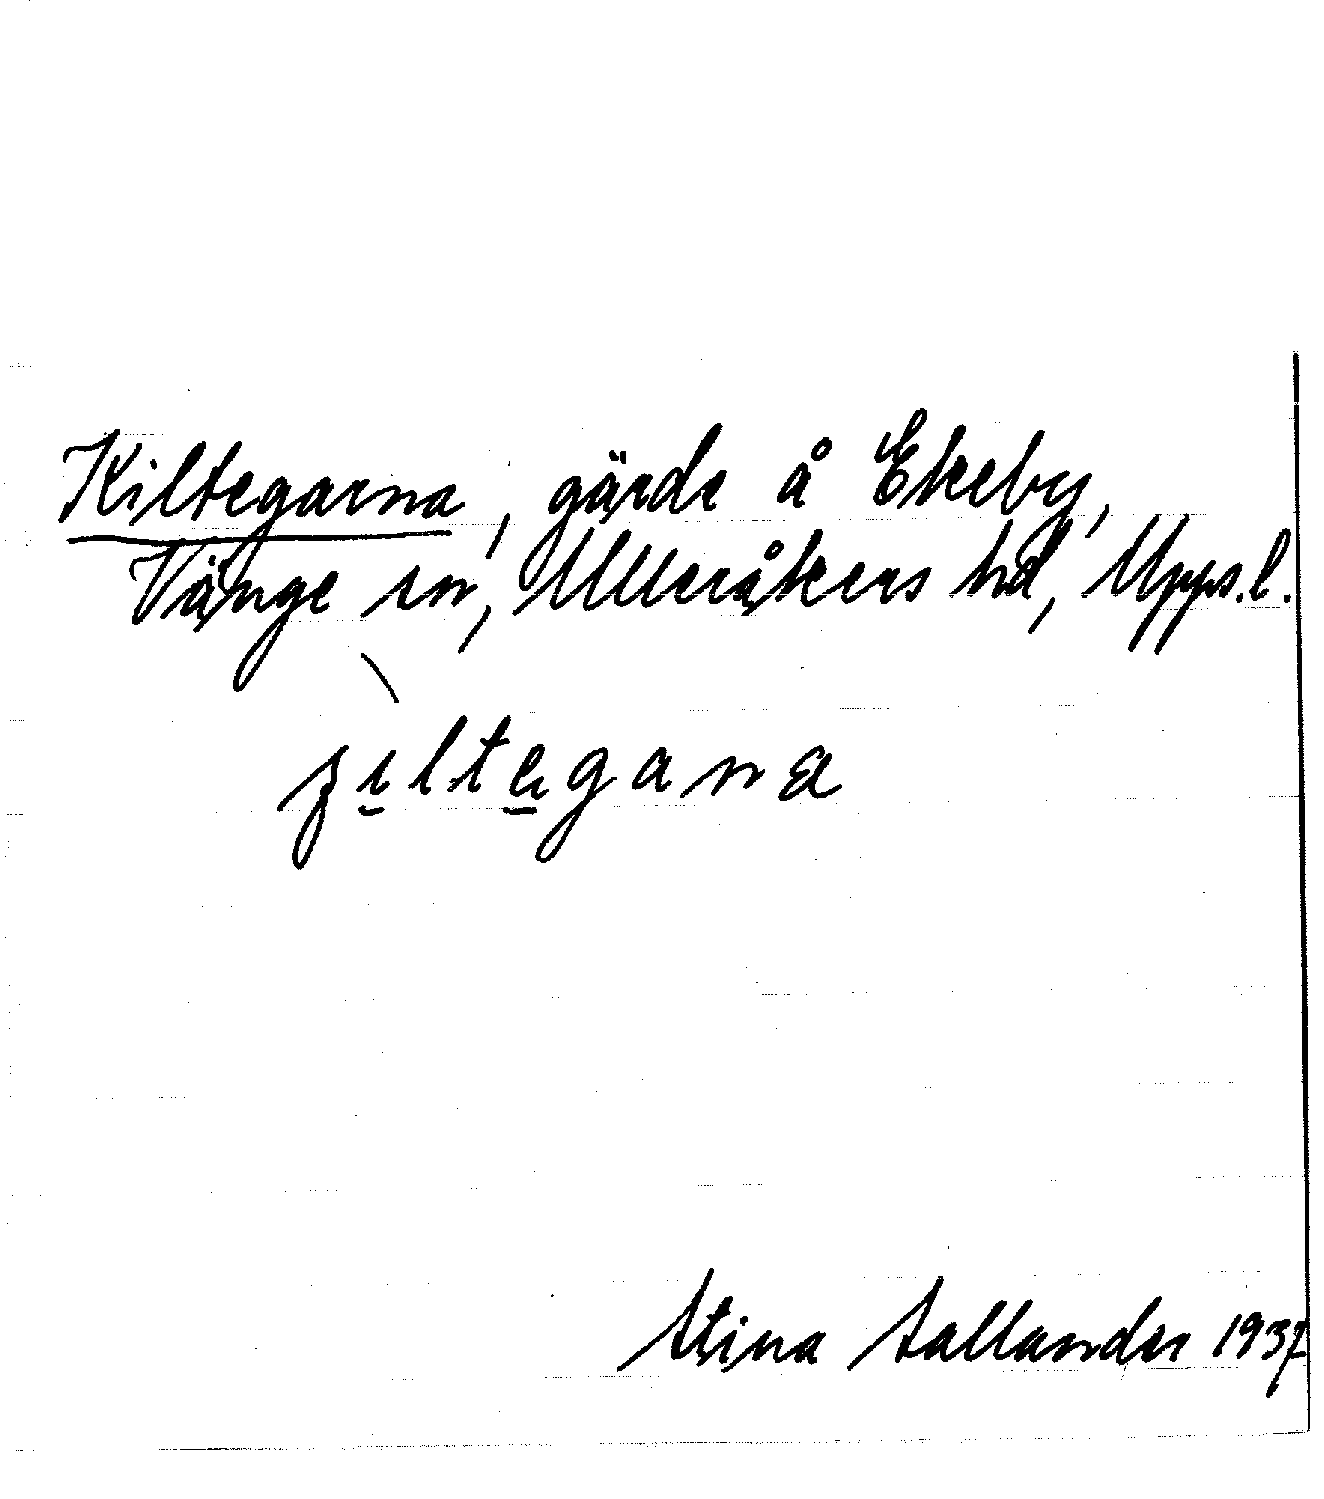 Kiltegarna, gärde å Ekeby,
Vänge sn, Ulleråkers hd, Upps.l.
Stina Sallander 1937